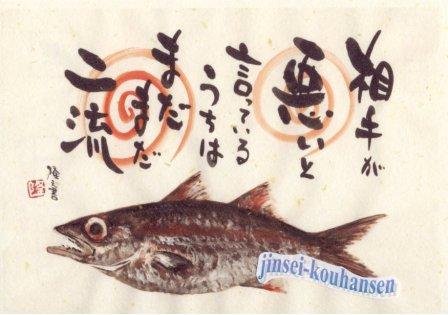 相手が
悪いと
言っている
うちは
まだ
まだ
二流
jinsei-kouhansen